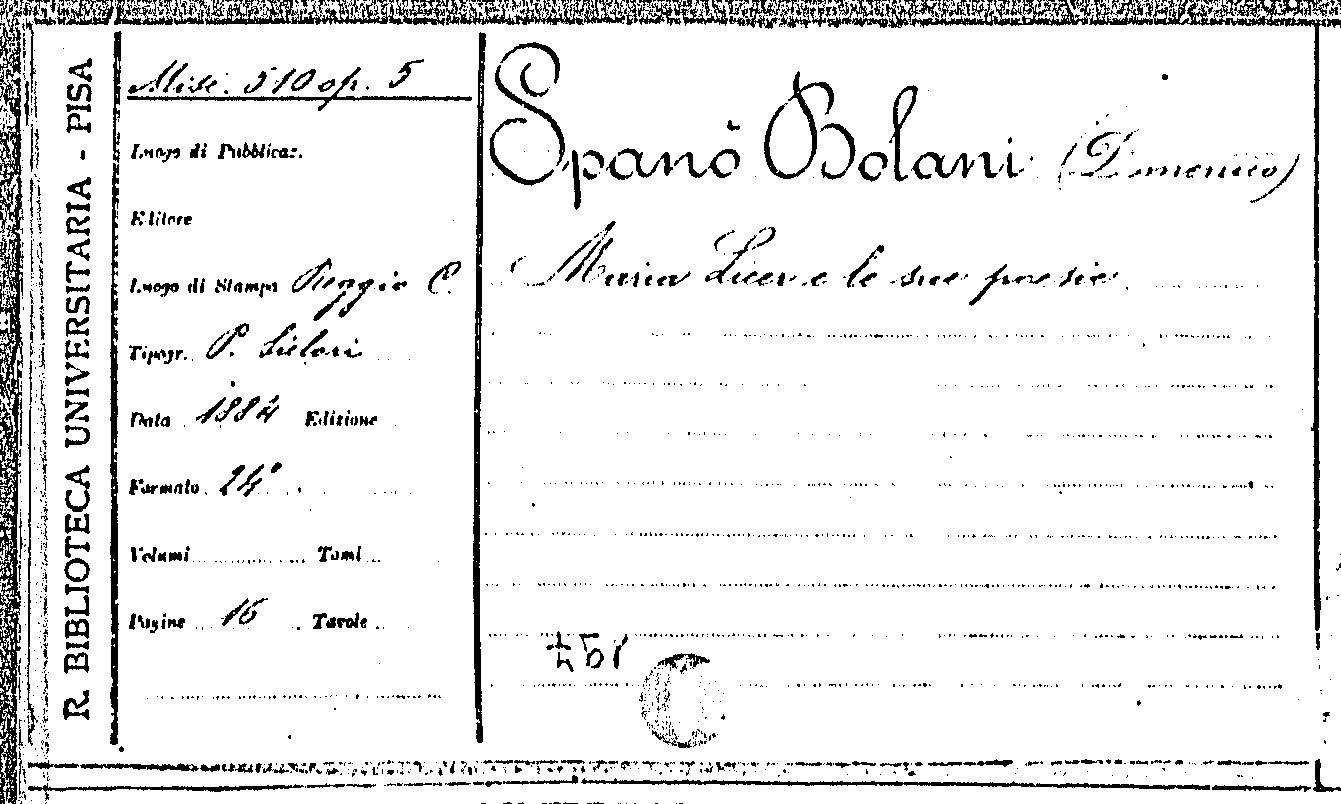 R. BIBLIOTECA UNIVERSITARIA - PISA
Misc. 510 op. 5
Luogo di Pubblicaz.
Editore
Luogo di Stampa Reggio C.
Tipogr. P.
Data 1884 Edizione
Formato 24°
Volumi Tomi
Pagine 16 Tavole
Spanò Bolani (Domenico)
Maria e le sue poesie.